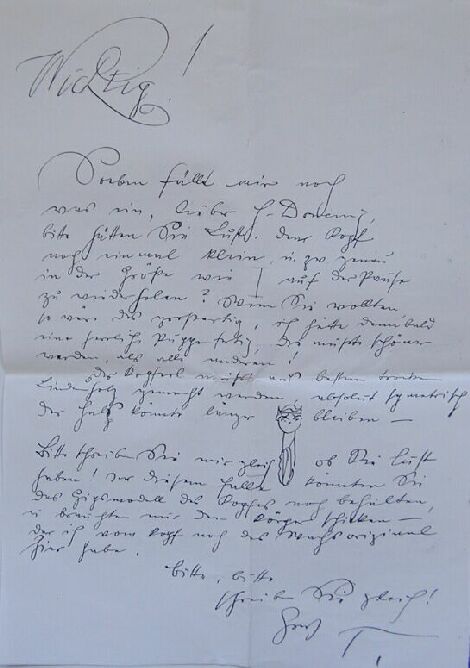 Wichtig!
Soeben fällt mir noch
was ein, lieber H.
bitte hätten Sie Lust, den Kopf
noch einmal klein, u. zw. genau
in der Größe wie auf der Pause
zu wiederholen? Wenn Sie wollten
so wäre das großartig, ich hätte demnächst
eine herrliche Puppe fertig. Die müßte schöner
werden, als alle anderen!
Das müßte aus bestem
Lindenholz gemacht werden, absolut symmetrisch
der Hals könnte länger bleiben —
Bitte schreiben Sie mir gleich ob Sie Lust
haben! In diesem Falle könnten Sie
das Gipsmodell des Kopfes noch behalten,
u. bräuchten mir den Körper schicken —
da ich vom Kopf noch das Wachsoriginal
hier habe.
Bitte, bitte
schreiben Sie gleich!